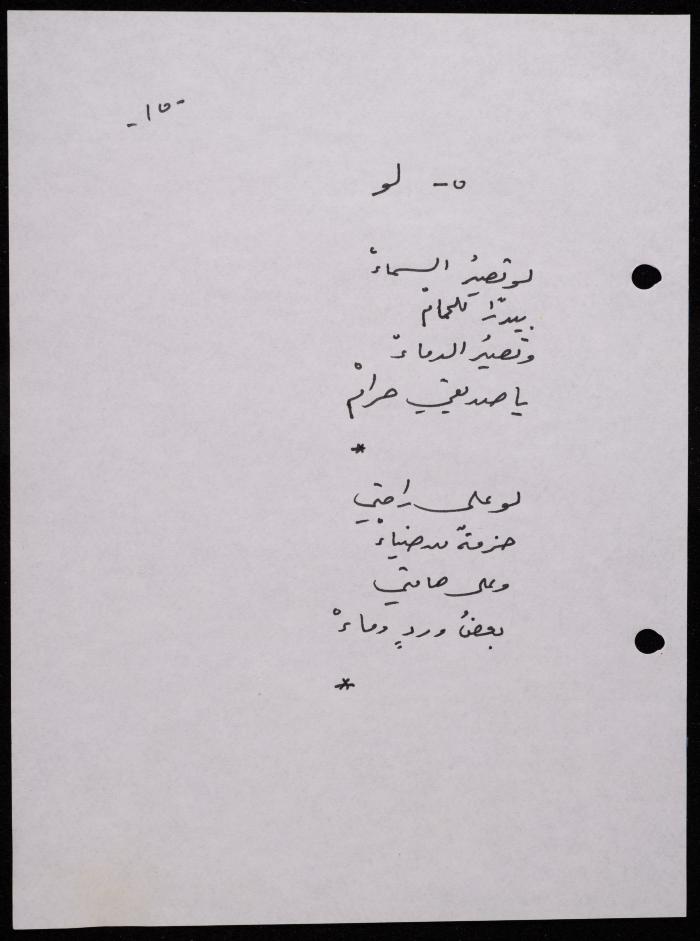 -١٥-
٥- لو
لو تصيرُ السماءْ
بيدرًا للحمامْ
وتصيرُ الدماءْ
يا صديقي حرامْ
*
لو على راحتي
حزمةٌ من ضياءْ
وعلى هامتي
بعضُ وردٍ وماءْ
*